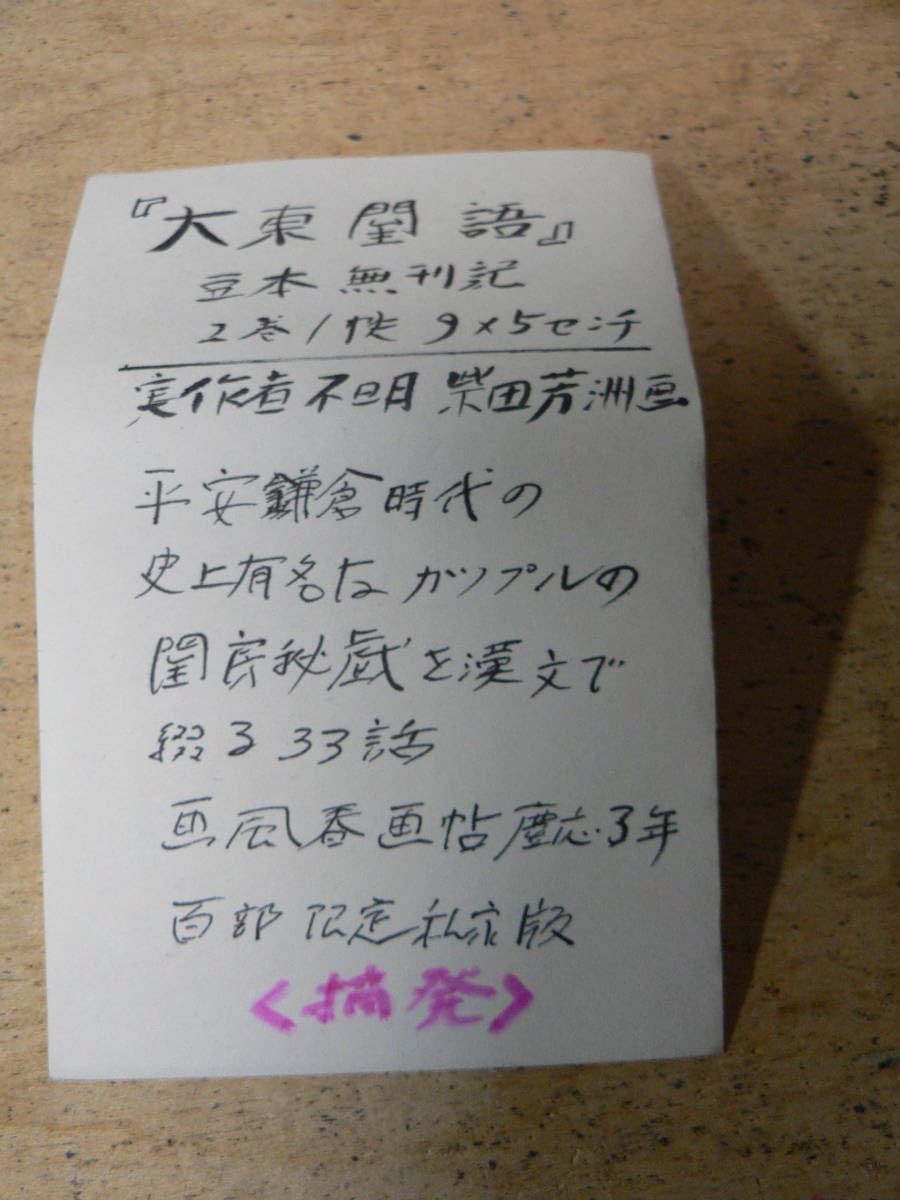 『大東閨語』
豆本 無刊記
2巻1帙 9×5センチ
実作者不明 柴田芳洲画
平安鎌倉時代の
史上有名なカップルの
閨房秘戯を漢文で
綴る 33話
画風春画帖慶応3年
百部限定私家版
<摘発>